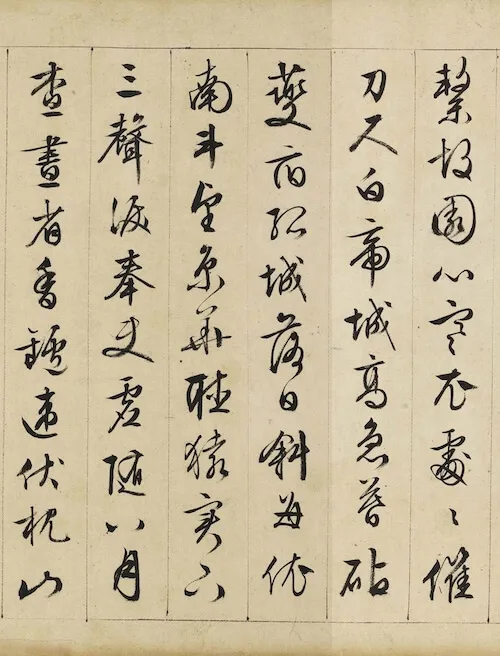 繫故園心寒衣處〻催
刀尺白帝城高急暮砧
夔府孤城落日斜每依
南斗望京華聽猿實下
三聲淚奉使虛隨八月
查畫省香鑪違伏枕山